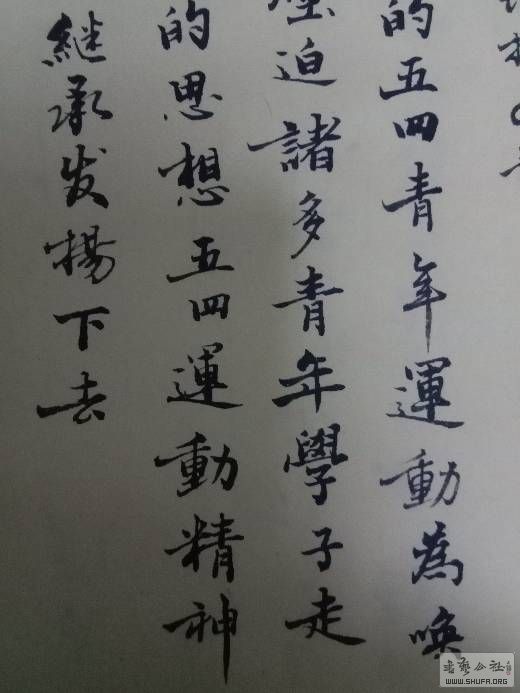 的五四青年運動為喚
迫諸多青年學子走
的思想五四運動精神
継承发揚下去
書藝公社
WWW.SHUFA.ORG